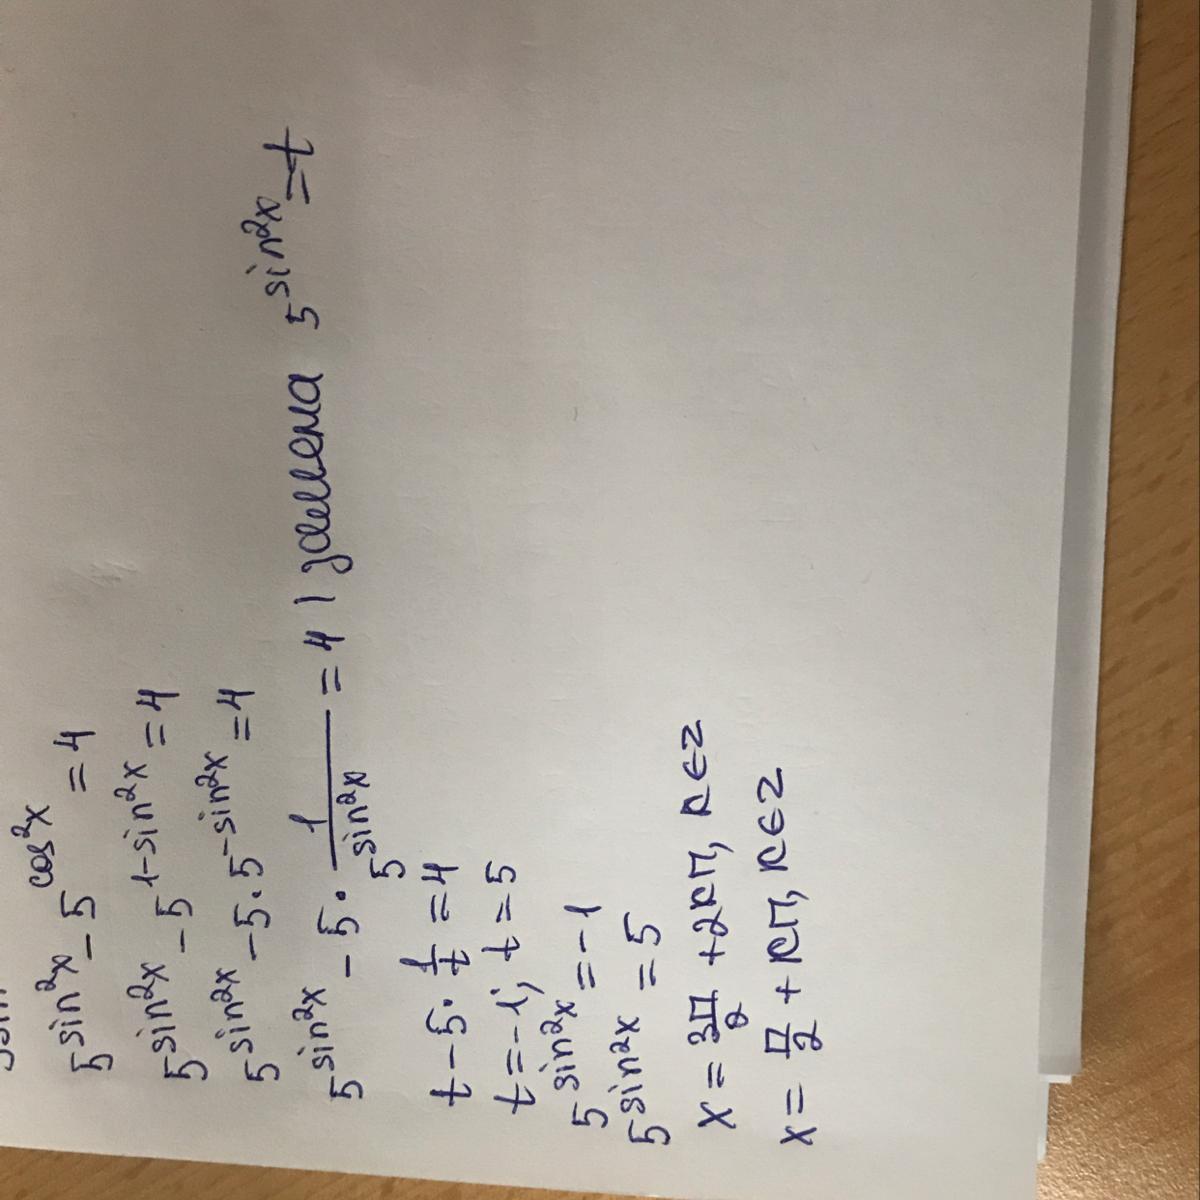 5^sin²x − 5^cos²x = 4
5^sin²x − 5^1−sin²x = 4
5^sin²x − 5·5^−sin²x = 4
5^sin²x − 5·1/5^sin²x = 4 | замена 5^sin²x = t
t − 5·1/t = 4
t = −1; t = 5
5^sin²x = −1
5^sin²x = 5
x = 3П/2 + 2kП, k∈Z
x = П/2 + kП, k∈Z